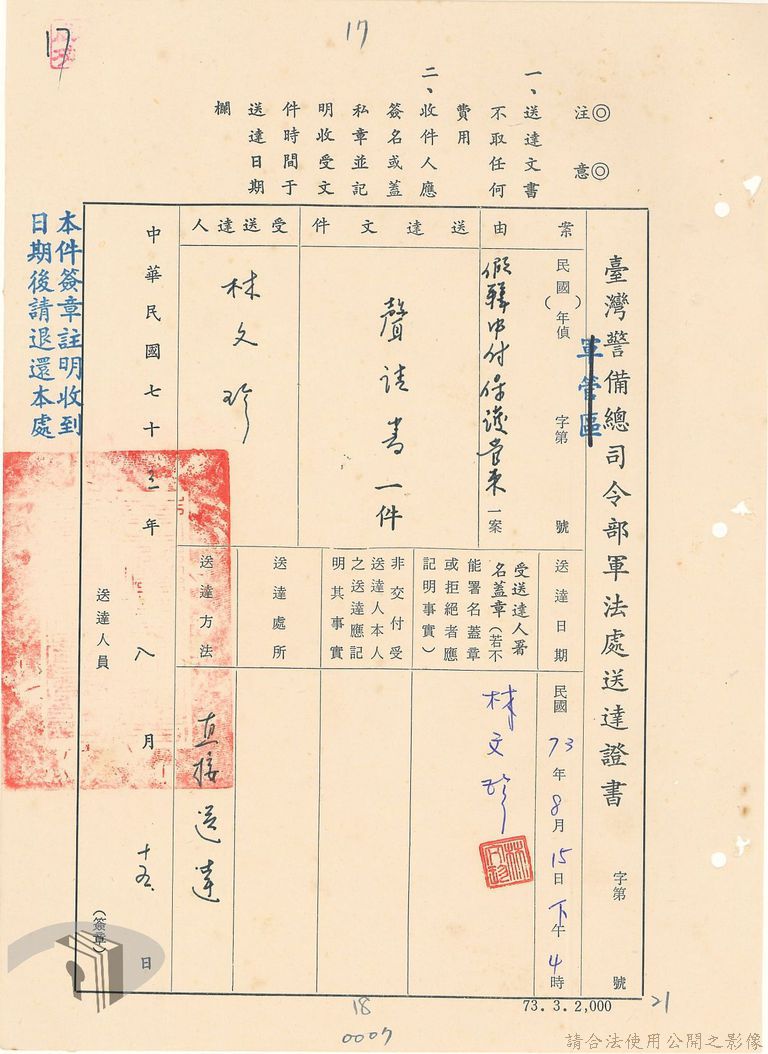 17
17
◎注意◎
一、送達文書
不取任何
費用
二、收件人應
簽名或蓋
私章並記
明收受文
件時間于
送達日期
欄
臺灣警備總司令部軍法處送達證書
軍管區
字第 號
案由
民國( )年偵 字第 號
假釋中付保護管束一案
送達文件
聲請書一件
受送達人
林文珍
送達日期
民國73年8月15日下午4時
受送達人署
名蓋章(若不
能署名蓋章
或拒絕者應
記明事實)
林文珍
非交付受
送達人本人
之送達應記
明其事實
送達處所
送達方法
直接送達
中華民國七十三年八月十五日
送達人員
(簽章)
本件簽章註明收到
日期後請退還本處
73.3.2,000
21
18
0007
請合法使用公開之影像